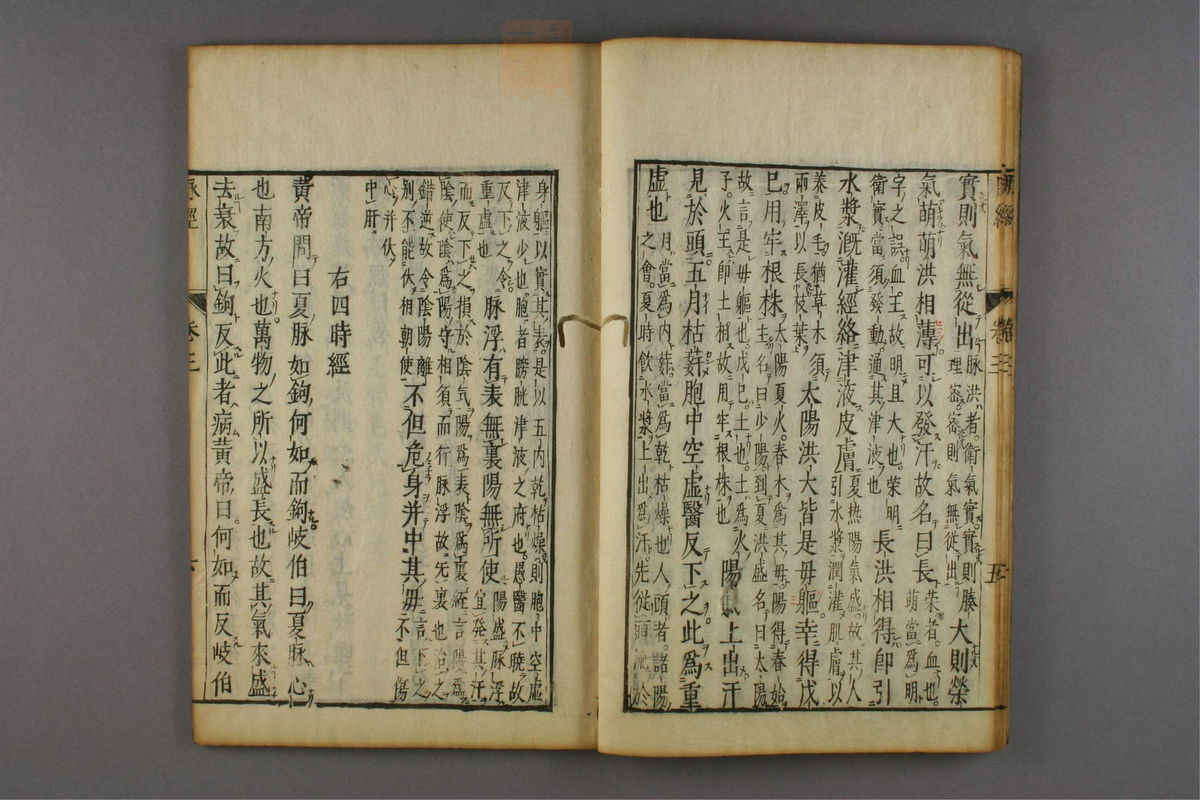 脉經 卷三 五
實則氣無從出
脉洪者衛氣實實則腠
理密密則氣無從出
大則榮
氣萌萌洪相薄可以發汗故名曰長
榮者血也
萌當爲明
字之誤血王故明且大也榮明
衛實當須發動通其津液也
長洪相得即引
水漿漑灌經絡津液皮膚
夏热陽氣盛故其人
引水漿潤灌肌膚以
养皮毛猶草木須
雨澤以長枝葉
太陽洪大皆是毋軀幸得戊
巳用牢根株
太陽夏火春木爲其毋陽得春始
王名曰少陽到夏洪盛名曰太陽
故言是毋軀也戊巳土也土爲火
子火王即土相故用牢根株也
陽氣上出汗
見於頭五月枯薪胞中空虛醫反下之此爲重
虛也
月當爲内薪當爲乾枯燥也人頭者諸陽
之會夏時飲水漿上出爲汗先從頭流於
身軀以實其表是以五内乾枯燥則胞中空虛
津液少也胞者膀胱津液之府也愚醫不曉故
反下之令
重虛也
脉浮有表無裏陽無所使
陽盛脉浮
宜発其汗
而反下之損於陰気陽爲表陰爲裏経言陽爲
陰使陰爲陽守相須而行脉浮故无裏也治之
錯逆故令陰陽離
别不能伏相朝使
不但危身并中其毋
言下之
不但傷
心并伏
中肝
右四時經
黃帝問曰夏脉如鉤何如而鉤岐伯曰夏脉心
也南方火也萬物之所以盛長也故其氣來盛
去衰故曰鉤反此者病黃帝曰何如而反岐伯
脉經 卷三